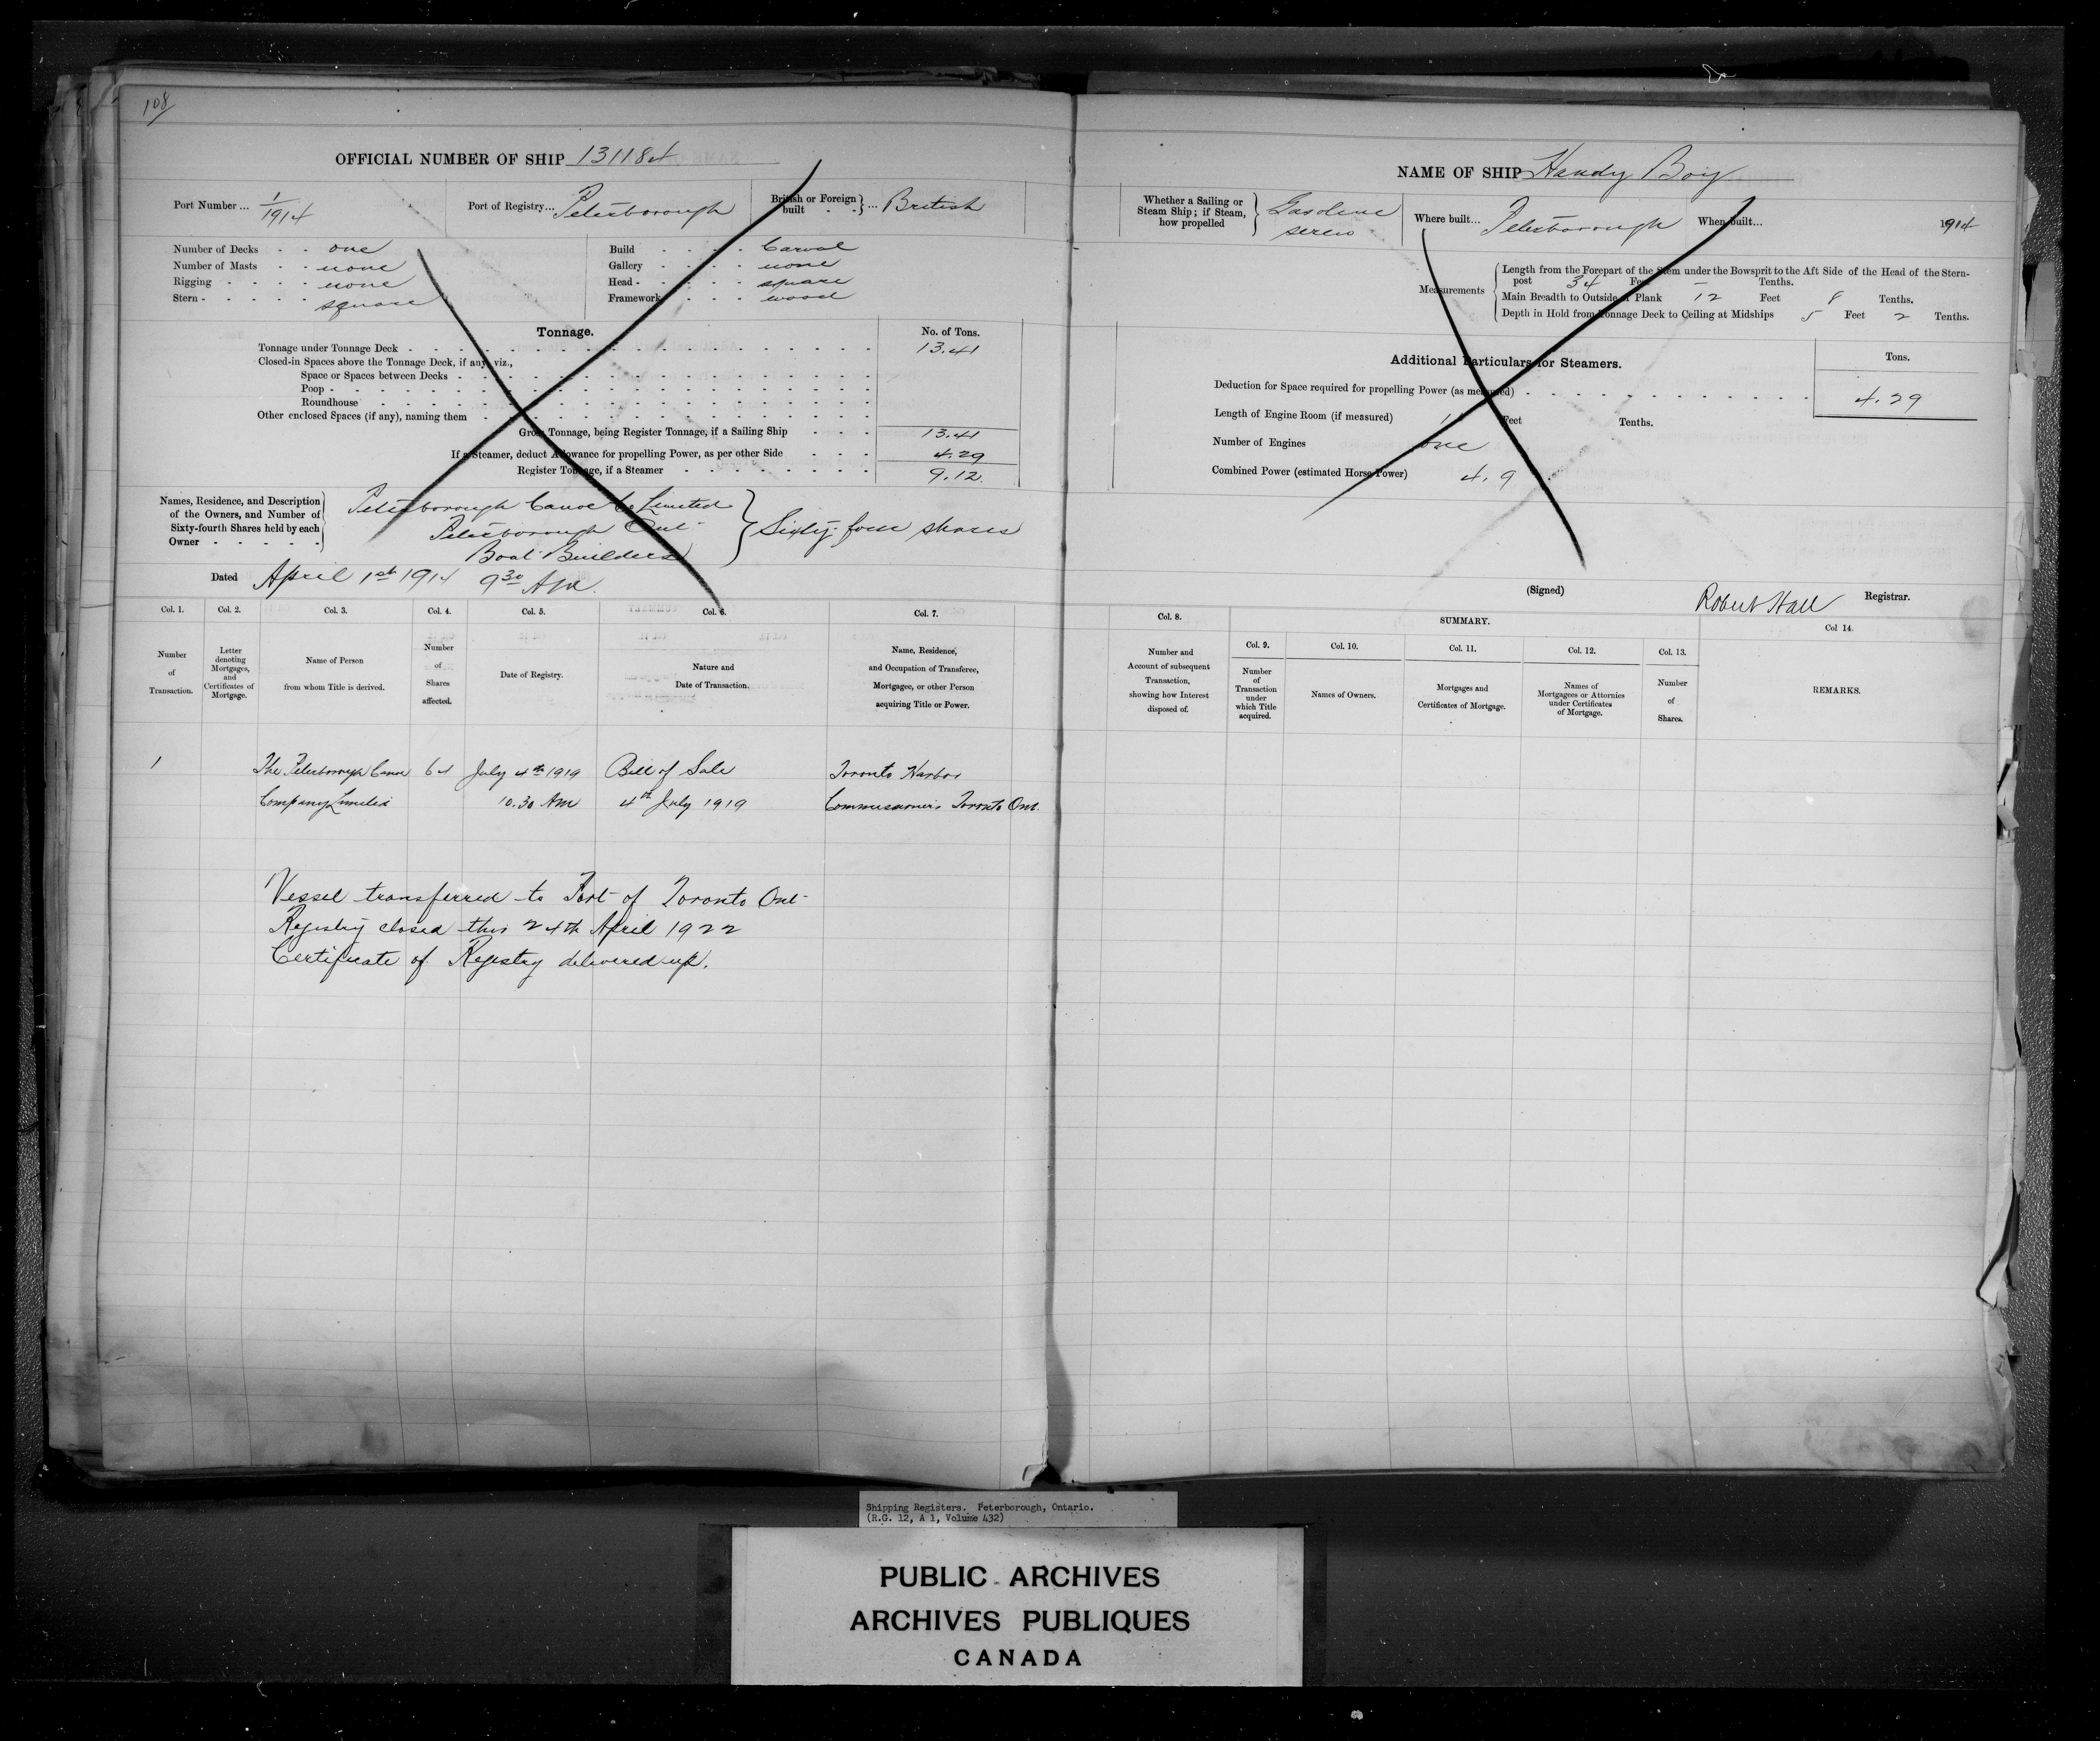 108
OFFICIAL NUMBER OF SHIP 131184
Port Number ... 1/1914
Port of Registry... Peterborough
British or Foreign built - - } ... British
Number of Decks - - one
Number of Masts - - none
Rigging - - - - none
Stern - - - - - square
Build - - - - Carvel
Gallery - - - - none
Head - - - - - square
Framework - - - wood
Tonnage.
No. of Tons.
Tonnage under Tonnage Deck 13.41
Closed-in Spaces above the Tonnage Deck, if any, viz.,
Space or Spaces between Decks
Poop
Roundhouse
Other enclosed Spaces (if any), naming them
Gross Tonnage, being Register Tonnage, if a Sailing Ship 13.41
If a Steamer, deduct Allowance for propelling Power, as per other Side 4.29
Register Tonnage, if a Steamer 9.12.
Names, Residence, and Description
of the Owners, and Number of
Sixty-fourth Shares held by each
Owner - - - - -
Peterborough Canoe Co Limited
Peterborough Ont
Boat Builders
} Sixty four shares
Dated April 1st 1914 9 30 AM.
Col. 1.
Number
of
Transaction.
Col. 2.
Letter
denoting
Mortgages,
and
Certificates of
Mortgage.
Col. 3.
Name of Person
from whom Title is derived.
Col. 4.
Number
of
Shares
affected.
Col. 5.
Date of Registry.
Col. 6.
Nature and
Date of Transaction.
Col. 7.
Name, Residence,
and Occupation of Transferee,
Mortgagee, or other Person
acquiring Title or Power.
1 The Peterborough Canoe 64 July 4th 1919 Bill of Sale Toronto Harbor
Company Limited 10.30 AM 4th July 1919 Commissioners Toronto Ont.
Vessel transferred to Port of Toronto Ont
Registry closed this 24th April 1922
Certificate of Registry delivered up.
NAME OF SHIP Handy Boy
Whether a Sailing or
Steam Ship; if Steam,
how propelled
Gasoline
screw
Where built... Peterborough
When built... 1914
Measurements
Length from the Forepart of the Stem under the Bowsprit to the Aft Side of the Head of the Stern-
post 34 Feet - Tenths.
Main Breadth to Outside of Plank 12 Feet 8 Tenths.
Depth in Hold from Tonnage Deck to Ceiling at Midships 5 Feet 2 Tenths.
Additional Particulars for Steamers.
Tons.
Deduction for Space required for propelling Power (as measured) 4.29
Length of Engine Room (if measured) Feet Tenths.
Number of Engines one
Combined Power (estimated Horse Power) 4.9
(Signed) Robert Hall Registrar.
Col. 8.
Number and
Account of subsequent
Transaction,
showing how Interest
disposed of.
SUMMARY.
Col. 9.
Number
of
Transaction
under
which Title
acquired.
Col. 10.
Names of Owners.
Col. 11.
Mortgages and
Certificates of Mortgage.
Col. 12.
Names of
Mortgagees or Attornies
under Certificates
of Mortgage.
Col. 13.
Number
of
Shares.
Col 14.
REMARKS.
Shipping Registers. Peterborough, Ontario.
(R.G. 12, A 1, Volume 432)
PUBLIC ARCHIVES
ARCHIVES PUBLIQUES
CANADA